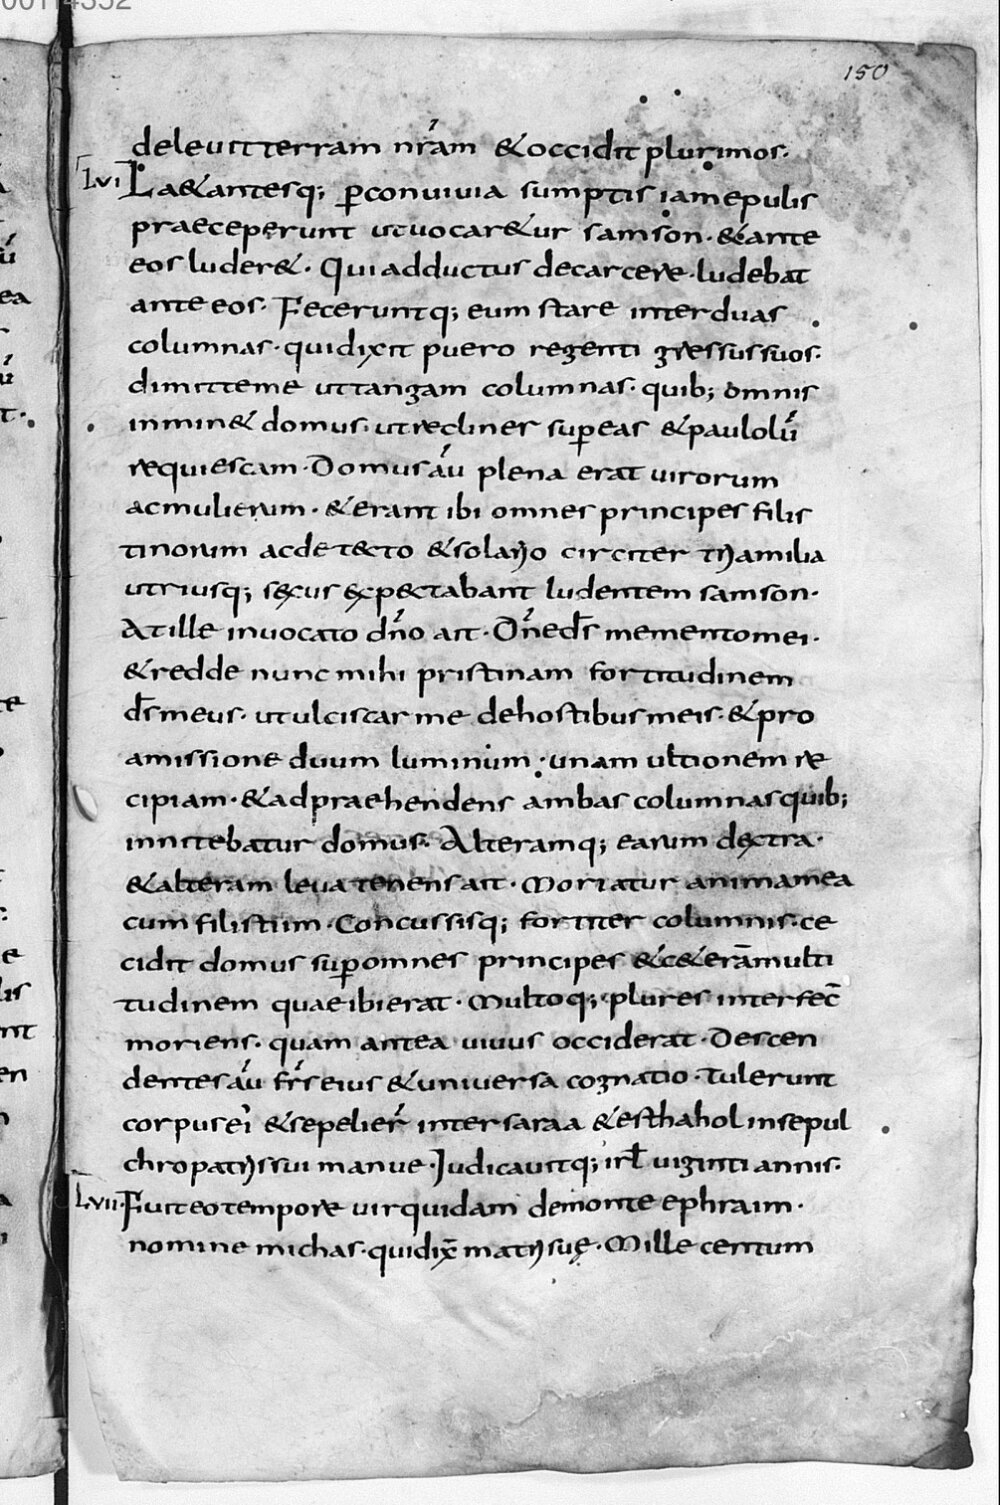 00114352
150
deleuit terram nr̄am & occidit plurimos.
Lvi La&antesq; ꝑconuiuia sumptis iam epulis
praeceperunt ut uocar&ur samson · & ante
eos luder& · Qui adductus de carcere · ludebat
ante eos · Feceruntq; eum stare inter duas
columnas · qui dixit puero regenti gressus suos.
dimitte me ut tangam columnas · quib; omnis
inmin& domus · ut recliner super eas & paulolū
requiescam · Domus au̅ plena erat uirorum
ac mulierum · & erant ibi omnes principes filis
tinorum ac de tecto & solario circiter tria milia
utriusq; sexus expectabant ludentem samson ·
At ille inuocato dn̄o ait · Dn̄e ds̄ memento mei ·
& redde nunc mihi pristinam fortitudinem
ds̄ meus · ut ulciscar me de hostibus meis · & pro
amissione duum luminum · unam ultionem re
cipiam · & adpraehendens ambas columnas quib;
innitebatur domus · Alteramq; earum dextra ·
& alteram leua tenens ait · Moriatur anima mea
cum filistiim · Concussisq; fortiter columnis · ce
cidit domus suꝑ omnes principes & c&erā multi
tudinem quae ibi erat · Multoq; plures interfec̄
moriens · quam antea uiuus occiderat · Descen
dentes au̅ fr̄s eius & uniuersa cognatio · Tulerunt
corpus ei & sepelier̄ inter saraa & esthahol in sepul
chro patris sui manue · Iudicauitq; isrl̄ uiginti annis.
Lvii Fuit eo tempore uir quidam de monte ephraim ·
nomine michas · qui dix̄ matri suę · Mille centum